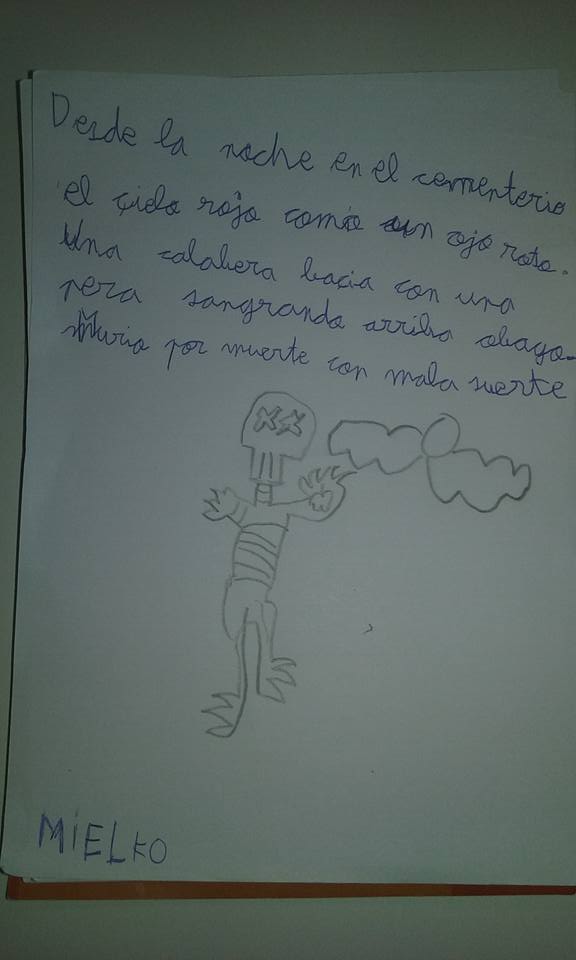 Desde la noche en el cementerio
el cielo rojo como un ojo roto.
Una calabera bacia con una
pera sangrando arriba abago.
Murio por muerte con mala suerte
MiELKO